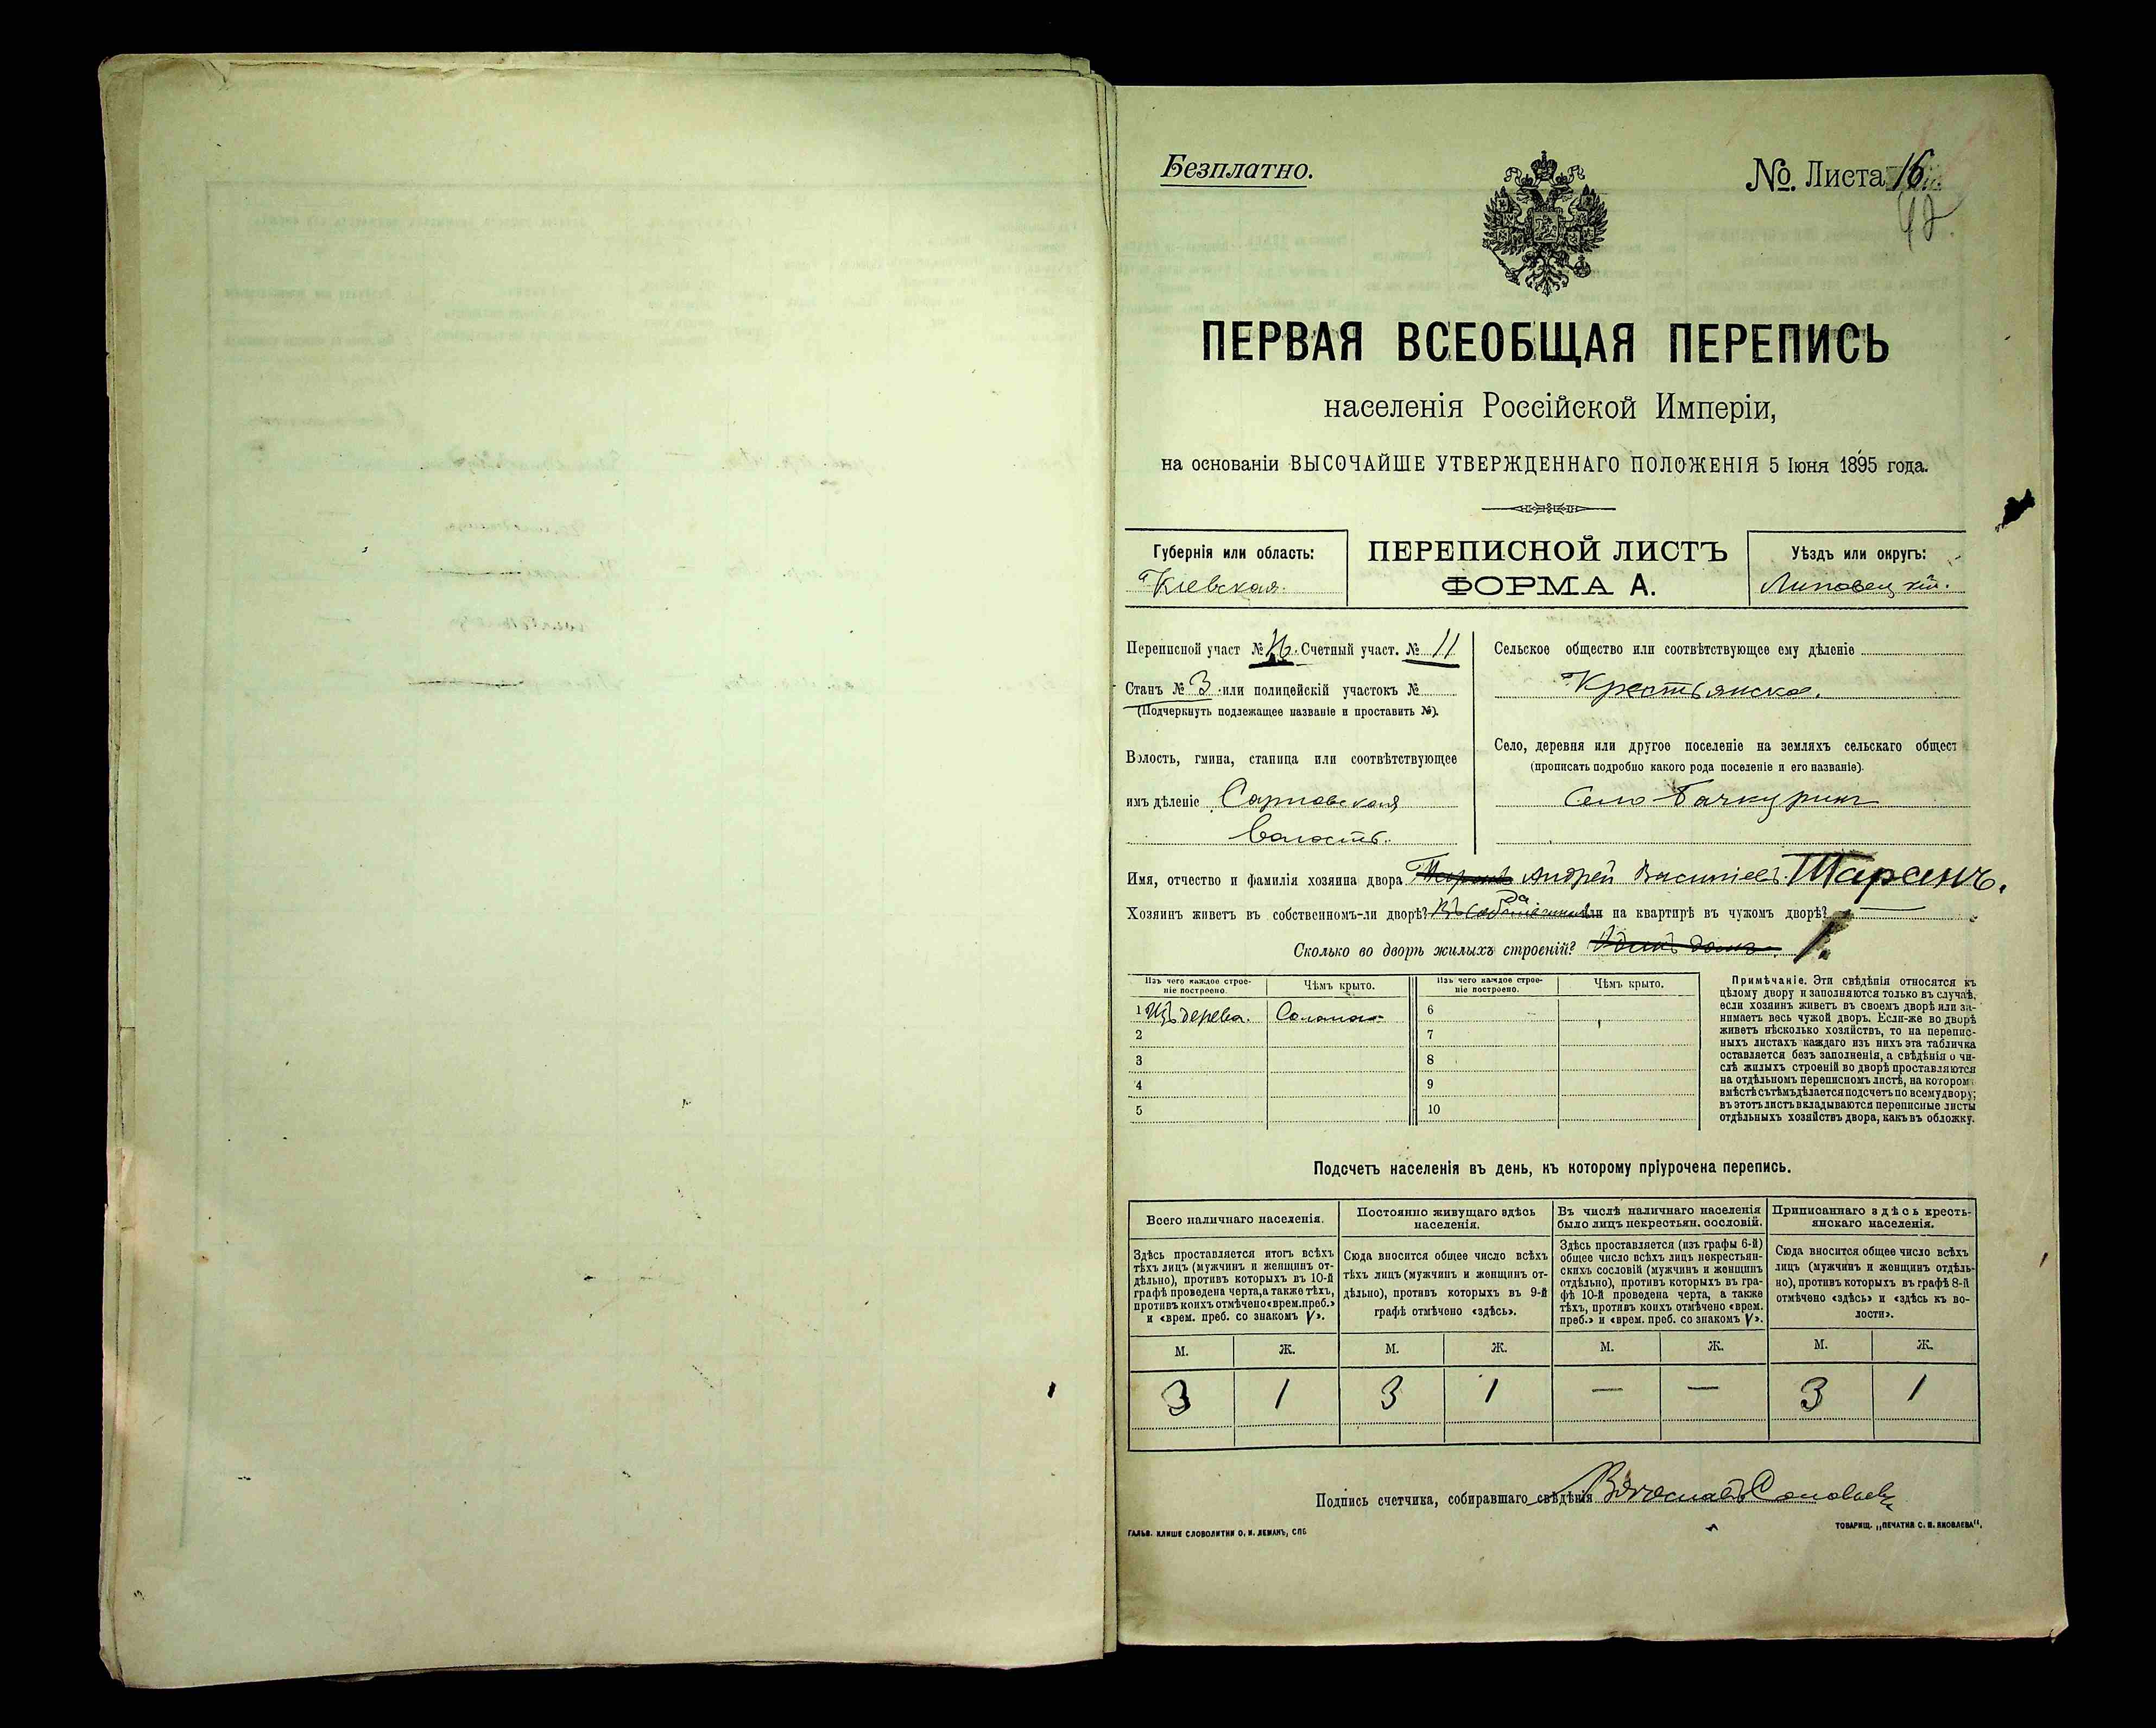 Безплатно.
№. Листа 16
42.
ПЕРВАЯ ВСЕОБЩАЯ ПЕРЕПИСЬ
населенія Россійской Имперіи,
на основаніи ВЫСОЧАЙШЕ УТВЕРЖДЕННАГО ПОЛОЖЕНІЯ 5 Іюня 1895 года.
Губернія или область:
Кіевская.
ПЕРЕПИСНОЙ ЛИСТЪ
ФОРМА А.
Уѣздъ или округъ:
Липовецкій.
Переписной участ № Счетный участ. № 11
Станъ № 3 или полицейскій участокъ №
(Подчеркнуть подлежащее названіе и проставить №).
Волость, гмина, станица или соотвѣтствующее
имъ дѣленіе Сарновская
волость.
Сельское общество или соотвѣтствующее ему дѣленіе
Крестьянское.
Село, деревня или другое поселеніе на земляхъ сельскаго общест
(прописать подробно какого рода поселеніе и его названіе).
Село Бачкурин
Имя, отчество и фамилія хозяина двора Андрей Васильевъ Таранъ.
Хозяинъ живетъ въ собственномъ-ли дворѣ? да или на квартирѣ въ чужомъ дворѣ? —
Сколько во дворѣ жилыхъ строеній? Одинъ домъ. 1.
Изъ чего каждое строе-
ніе построено.
Чѣмъ крыто.
Изъ чего каждое строе-
ніе построено.
Чѣмъ крыто.
1 Изъ дерева. Солома
2
3
4
5
6
7
8
9
10
Примѣчаніе. Эти свѣдѣнія относятся къ
цѣлому двору и заполняются только въ случаѣ,
если хозяинъ живетъ въ своемъ дворѣ или за-
нимаетъ весь чужой дворъ. Если-же во дворѣ
живетъ нѣсколько хозяйствъ, то на перепис-
ныхъ листахъ каждаго изъ нихъ эта табличка
оставляется безъ заполненія, а свѣдѣнія о чи-
слѣ жилыхъ строеній во дворѣ проставляются
на отдѣльномъ переписномъ листѣ, на котором
вмѣстѣ съ тѣмъ дѣлается подсчетъ по всему двору;
въ этотъ листъ вкладываются переписные листы
отдѣльныхъ хозяйствъ двора, какъ въ обложку.
Подсчетъ населенія въ день, къ которому пріурочена перепись.
Всего наличнаго населенія.
Здѣсь проставляется итогъ всѣхъ
тѣхъ лицъ (мужчинъ и женщинъ от-
дѣльно), противъ которыхъ въ 10-й
графѣ проведена черта, а также тѣхъ,
противъ коихъ отмѣчено «врем. преб.»
и «врем. преб. со знакомъ V».
Постоянно живущаго здѣсь
населенія.
Сюда вносится общее число всѣхъ
тѣхъ лицъ (мужчинъ и женщинъ от-
дѣльно), противъ которыхъ въ 9-й
графѣ отмѣчено «здѣсь».
Въ числѣ наличнаго населенія
было лицъ некрестьян. сословій.
Здѣсь проставляется (изъ графы 6-й)
общее число всѣхъ лицъ некрестьян-
скихъ сословій (мужчинъ и женщинъ
отдѣльно), противъ которыхъ въ гра-
фѣ 10-й проведена черта, а также
тѣхъ, противъ коихъ отмѣчено «врем.
преб.» и «врем. преб. со знакомъ V».
Приписаннаго здѣсь кресть-
янскаго населенія.
Сюда вносится общее число всѣхъ
лицъ (мужчинъ и женщинъ отдѣль-
но), противъ которыхъ въ графѣ 8-й
отмѣчено «здѣсь» и «здѣсь къ во-
лости».
М. Ж. М. Ж. М. Ж. М. Ж.
3 1 3 1 — — 3 1
Подпись счетчика, собиравшаго свѣдѣнія Вячеславъ Соловьевъ
ГАЛЬВ. КЛИШЕ СЛОВОЛИТНИ О. И. ЛЕМАНЪ, СПБ
ТОВАРИЩ. „ПЕЧАТНЯ С. П. ЯКОВЛЕВА“.